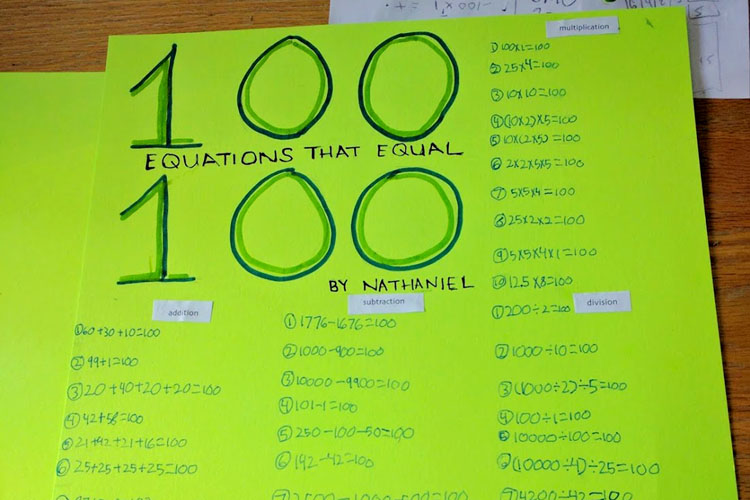 100
EQUATIONS THAT EQUAL
100
BY NATHANIEL
multiplication
① 100x1=100
② 25x4=100
③ 10x10=100
④ (10x2)x5=100
⑤ 10x(2x5)=100
⑥ 2x2x5x5=100
⑦ 5x5x4=100
⑧ 25x2x2=100
⑨ 5x5x4x1=100
⑩ 12.5x8=100
addition
① 60+30+10=100
② 99+1=100
③ 20+40+20+20=100
④ 42+58=100
⑤ 21+42+21+16=100
⑥ 25+25+25+25=100
subtraction
① 1776-1676=100
② 1000-900=100
③ 10000-9900=100
④ 101-1=100
⑤ 250-100-50=100
⑥ 142-42=100
division
① 200÷2=100
② 1000÷10=100
③ (1000÷2)÷5=100
④ 100÷1=100
⑤ 10000÷100=100
⑥ (10000÷4)÷25=100
⑦ 4200÷42=100